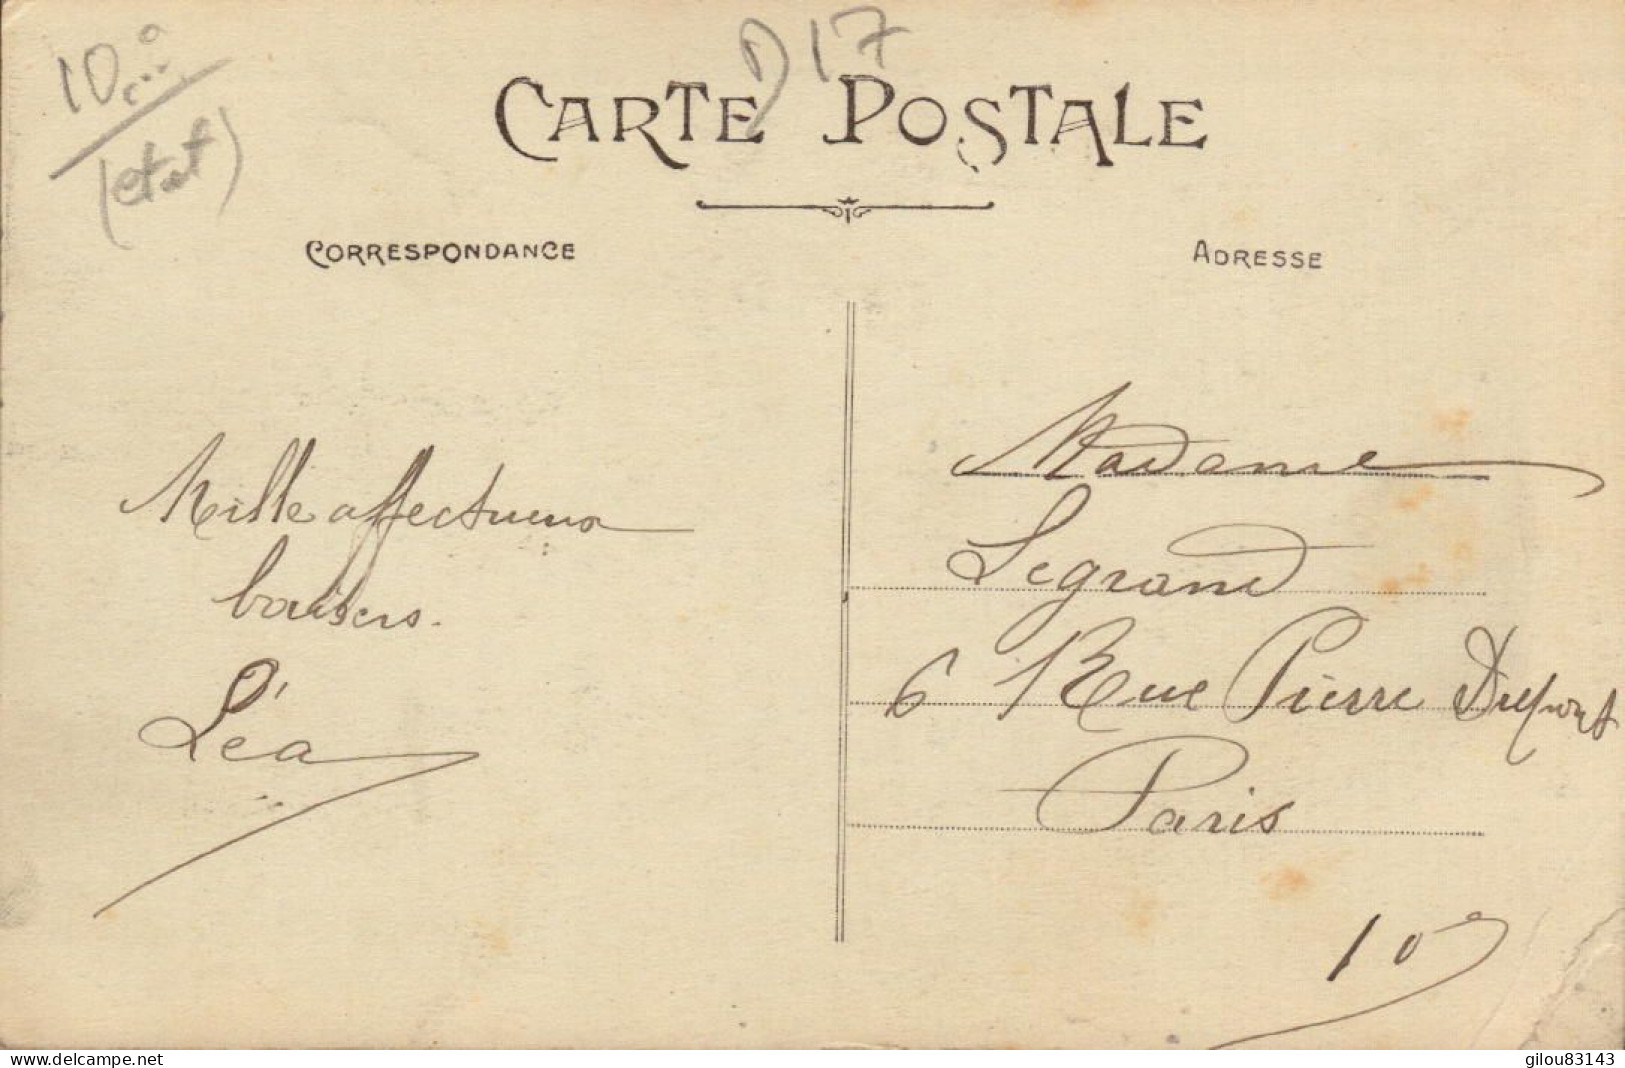 10
(état)
D17
CARTE POSTALE
CORRESPONDANCE
ADRESSE
Mille affectueux
baisers.
Léa
Madame
Legrand
6 Rue Pierre Dupont
Paris
10
www.delcampe.net
gilou83143